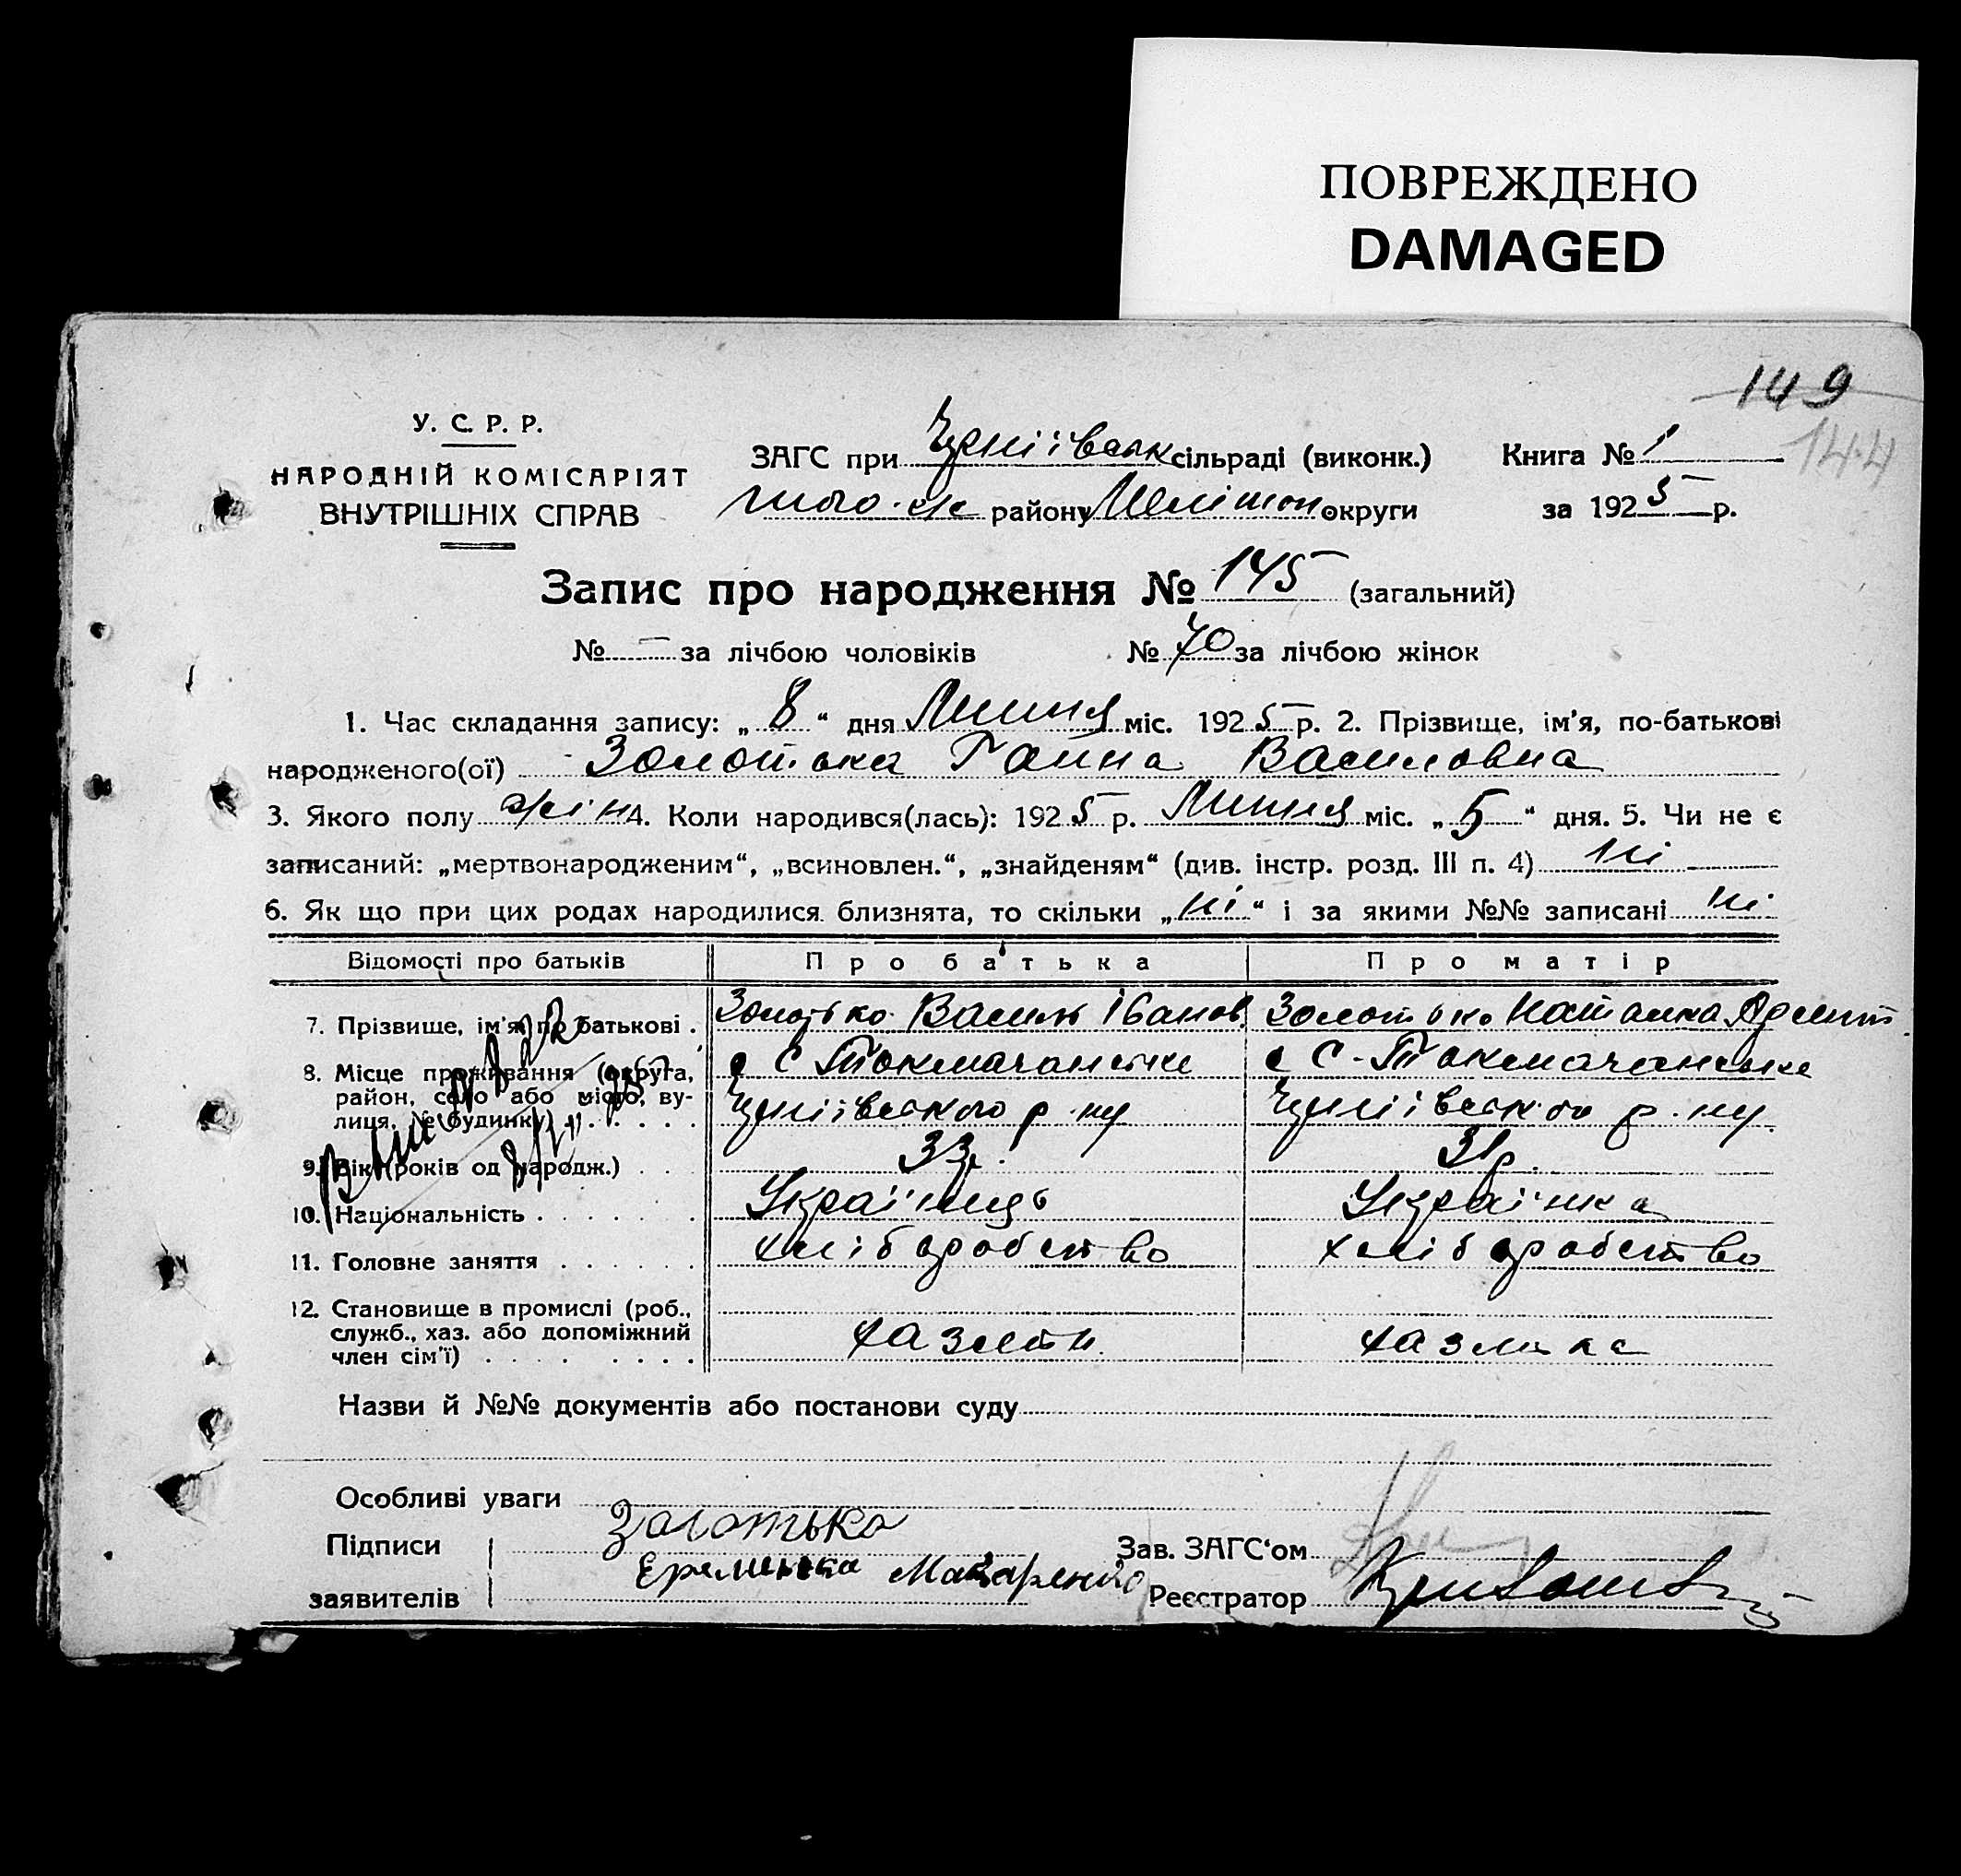 ПОВРЕЖДЕНО
DAMAGED
149
144
У. С. Р. Р.
НАРОДНІЙ КОМІСАРІЯТ
ВНУТРІШНІХ СПРАВ
ЗАГС при сільраді (виконк.)
того-же району Меліт округи
Книга № 1
за 1925 р.
Запис про народження № 145 (загальний)
№ — за лічбою чоловіків № 70 за лічбою жінок
1. Час складання запису: „ 8 “ дня Липня міс. 1925 р. 2. Прізвище, ім'я, по-батькові
народженого(ої) Золотька Ганна Василовна
3. Якого полу жін 4. Коли народився(лась): 1925 р. Липня міс. „ 5 “ дня. 5. Чи не є
записаний: „мертвонародженим“, „всиновлен.“, „знайденям“ (див. інстр. розд. III п. 4) ні
6. Як що при цих родах народилися близнята, то скільки „ ні “ і за якими №№ записані ні
Відомості про батьків Про батька Про матір
7. Прізвище, ім'я, по батькові . Золотько Василь Іванов. Золотько Наталка
8. Місце проживання (округа, с С Токмачанське с С-Токмачанське
район, село або місто, ву-
лиця, № будинку) . . . . . р. ну р. ну.
9. Вік (років од народж.) . . . 33 р. 31 р.
10. Національність . . . . . . . Українець Українка
11. Головне заняття . . . . . . хліборобство хліборобство
12. Становище в промислі (роб.,
служб., хаз. або допоміжний
член сім'ї) . . . . . . . . хазяїн. хазяйка
Назви й №№ документів або постанови суду
Особливі уваги
Підписи Золотько
Зав. ЗАГС‘ом
заявителів Макаренко
Реєстратор